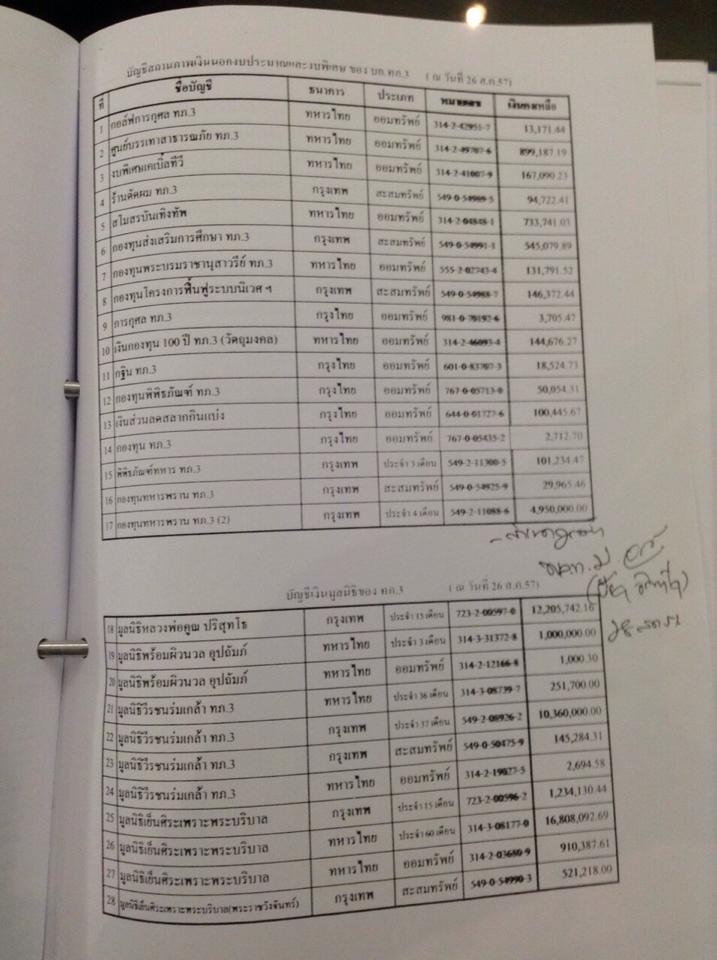 บัญชีสถานภาพเงินนอกงบประมาณและงบพิเศษ ของ บก.ทภ.3 ( ณ วันที่ 26 ส.ค.57)
ที่ ชื่อบัญชี ธนาคาร ประเภท หมายเลข เงินคงเหลือ
1 กอล์ฟการกุศล ทภ.3 ทหารไทย ออมทรัพย์ 314-2-42951-7 13,171.44
2 ศูนย์บรรเทาสาธารณภัย ทภ.3 ทหารไทย ออมทรัพย์ 314-2-49707-6 899,187.19
3 งบพิเศษเคเบิ้ลทีวี ทหารไทย ออมทรัพย์ 314-2-41007-9 167,090.23
4 ร้านตัดผม ทภ.3 กรุงเทพ สะสมทรัพย์ 94,722.41
5 สโมสรบันเทิงทัพ ทหารไทย ออมทรัพย์ 314-2-04848-1 733,741.03
6 กองทุนส่งเสริมการศึกษา ทภ.3 กรุงเทพ สะสมทรัพย์ 549-0-54991-1 545,079.89
7 กองทุนพระบรมราชานุสาวรีย์ ทภ.3 ทหารไทย ออมทรัพย์ 555-2-02743-4 131,791.52
8 กองทุนโครงการฟื้นฟูระบบนิเวศ ฯ กรุงเทพ สะสมทรัพย์ 549-0-54988-7 146,372.44
9 การกุศล ทภ.3 กรุงไทย ออมทรัพย์ 981-0-70192-6 3,705.47
10 เงินกองทุน 100 ปี ทภ.3 (วัตถุมงคล) ทหารไทย ออมทรัพย์ 314-2-46093-4 144,676.27
11 กฐิน ทภ.3 กรุงไทย ออมทรัพย์ 601-0-83707-3 18,524.73
12 กองทุนพิพิธภัณฑ์ ทภ.3 กรุงไทย ออมทรัพย์ 767-0-05713-0 50,054.31
13 เงินส่วนลดสลากกินแบ่ง กรุงไทย ออมทรัพย์ 644-0-01727-6 100,445.67
14 กองทุน ทภ.3 กรุงไทย ออมทรัพย์ 767-0-05435-2 2,712.70
15 พิพิธภัณฑ์ทหาร ทภ.3 กรุงเทพ ประจำ 3 เดือน 549-2-11300-5 101,234.47
16 กองทุนทหารพราน ทภ.3 กรุงเทพ สะสมทรัพย์ 549-0-54925-9 29,965.46
17 กองทุนทหารพราน ทภ.3 (2) กรุงเทพ ประจำ 4 เดือน 549-2-11088-6 4,950,000.00
บัญชีเงินมูลนิธิของ ทภ.3 ( ณ วันที่ 26 ส.ค.57)
18 มูลนิธิหลวงพ่อคูณ ปริสุทโธ กรุงเทพ ประจำ 15 เดือน 723-2-00597-0 12,205,742.16
19 มูลนิธิพร้อมผิวนวล อุปถัมภ์ ทหารไทย ประจำ 3 เดือน 314-3-31372-8 1,000,000.00
20 มูลนิธิพร้อมผิวนวล อุปถัมภ์ ทหารไทย ออมทรัพย์ 314-2-12166-8 1,000.30
21 มูลนิธิวีรชนร่มเกล้า ทภ.3 ทหารไทย ประจำ 36 เดือน 314-3-08739-7 251,700.00
22 มูลนิธิวีรชนร่มเกล้า ทภ.3 กรุงเทพ ประจำ 37 เดือน 549-2-08926-2 10,360,000.00
23 มูลนิธิวีรชนร่มเกล้า ทภ.3 กรุงเทพ สะสมทรัพย์ 549-0-50475-9 145,284.31
24 มูลนิธิวีรชนร่มเกล้า ทภ.3 ทหารไทย ออมทรัพย์ 314-2-19027-5 2,694.58
25 มูลนิธิเย็นศิระเพราะพระบริบาล กรุงเทพ ประจำ 15 เดือน 723-2-00596-2 1,234,130.44
26 มูลนิธิเย็นศิระเพราะพระบริบาล ทหารไทย ประจำ 60 เดือน 314-3-08177-0 16,808,092.69
27 มูลนิธิเย็นศิระเพราะพระบริบาล ทหารไทย ออมทรัพย์ 314-2-03680-9 910,387.61
28 มูลนิธิเย็นศิระเพราะพระบริบาล(พระราชวังจันทร์) กรุงเทพ สะสมทรัพย์ 549-0-54990-3 521,218.00